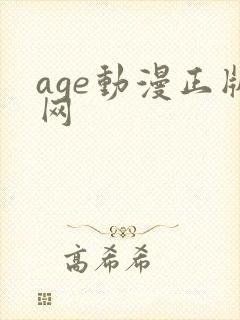 age動漫正版
网
高希希